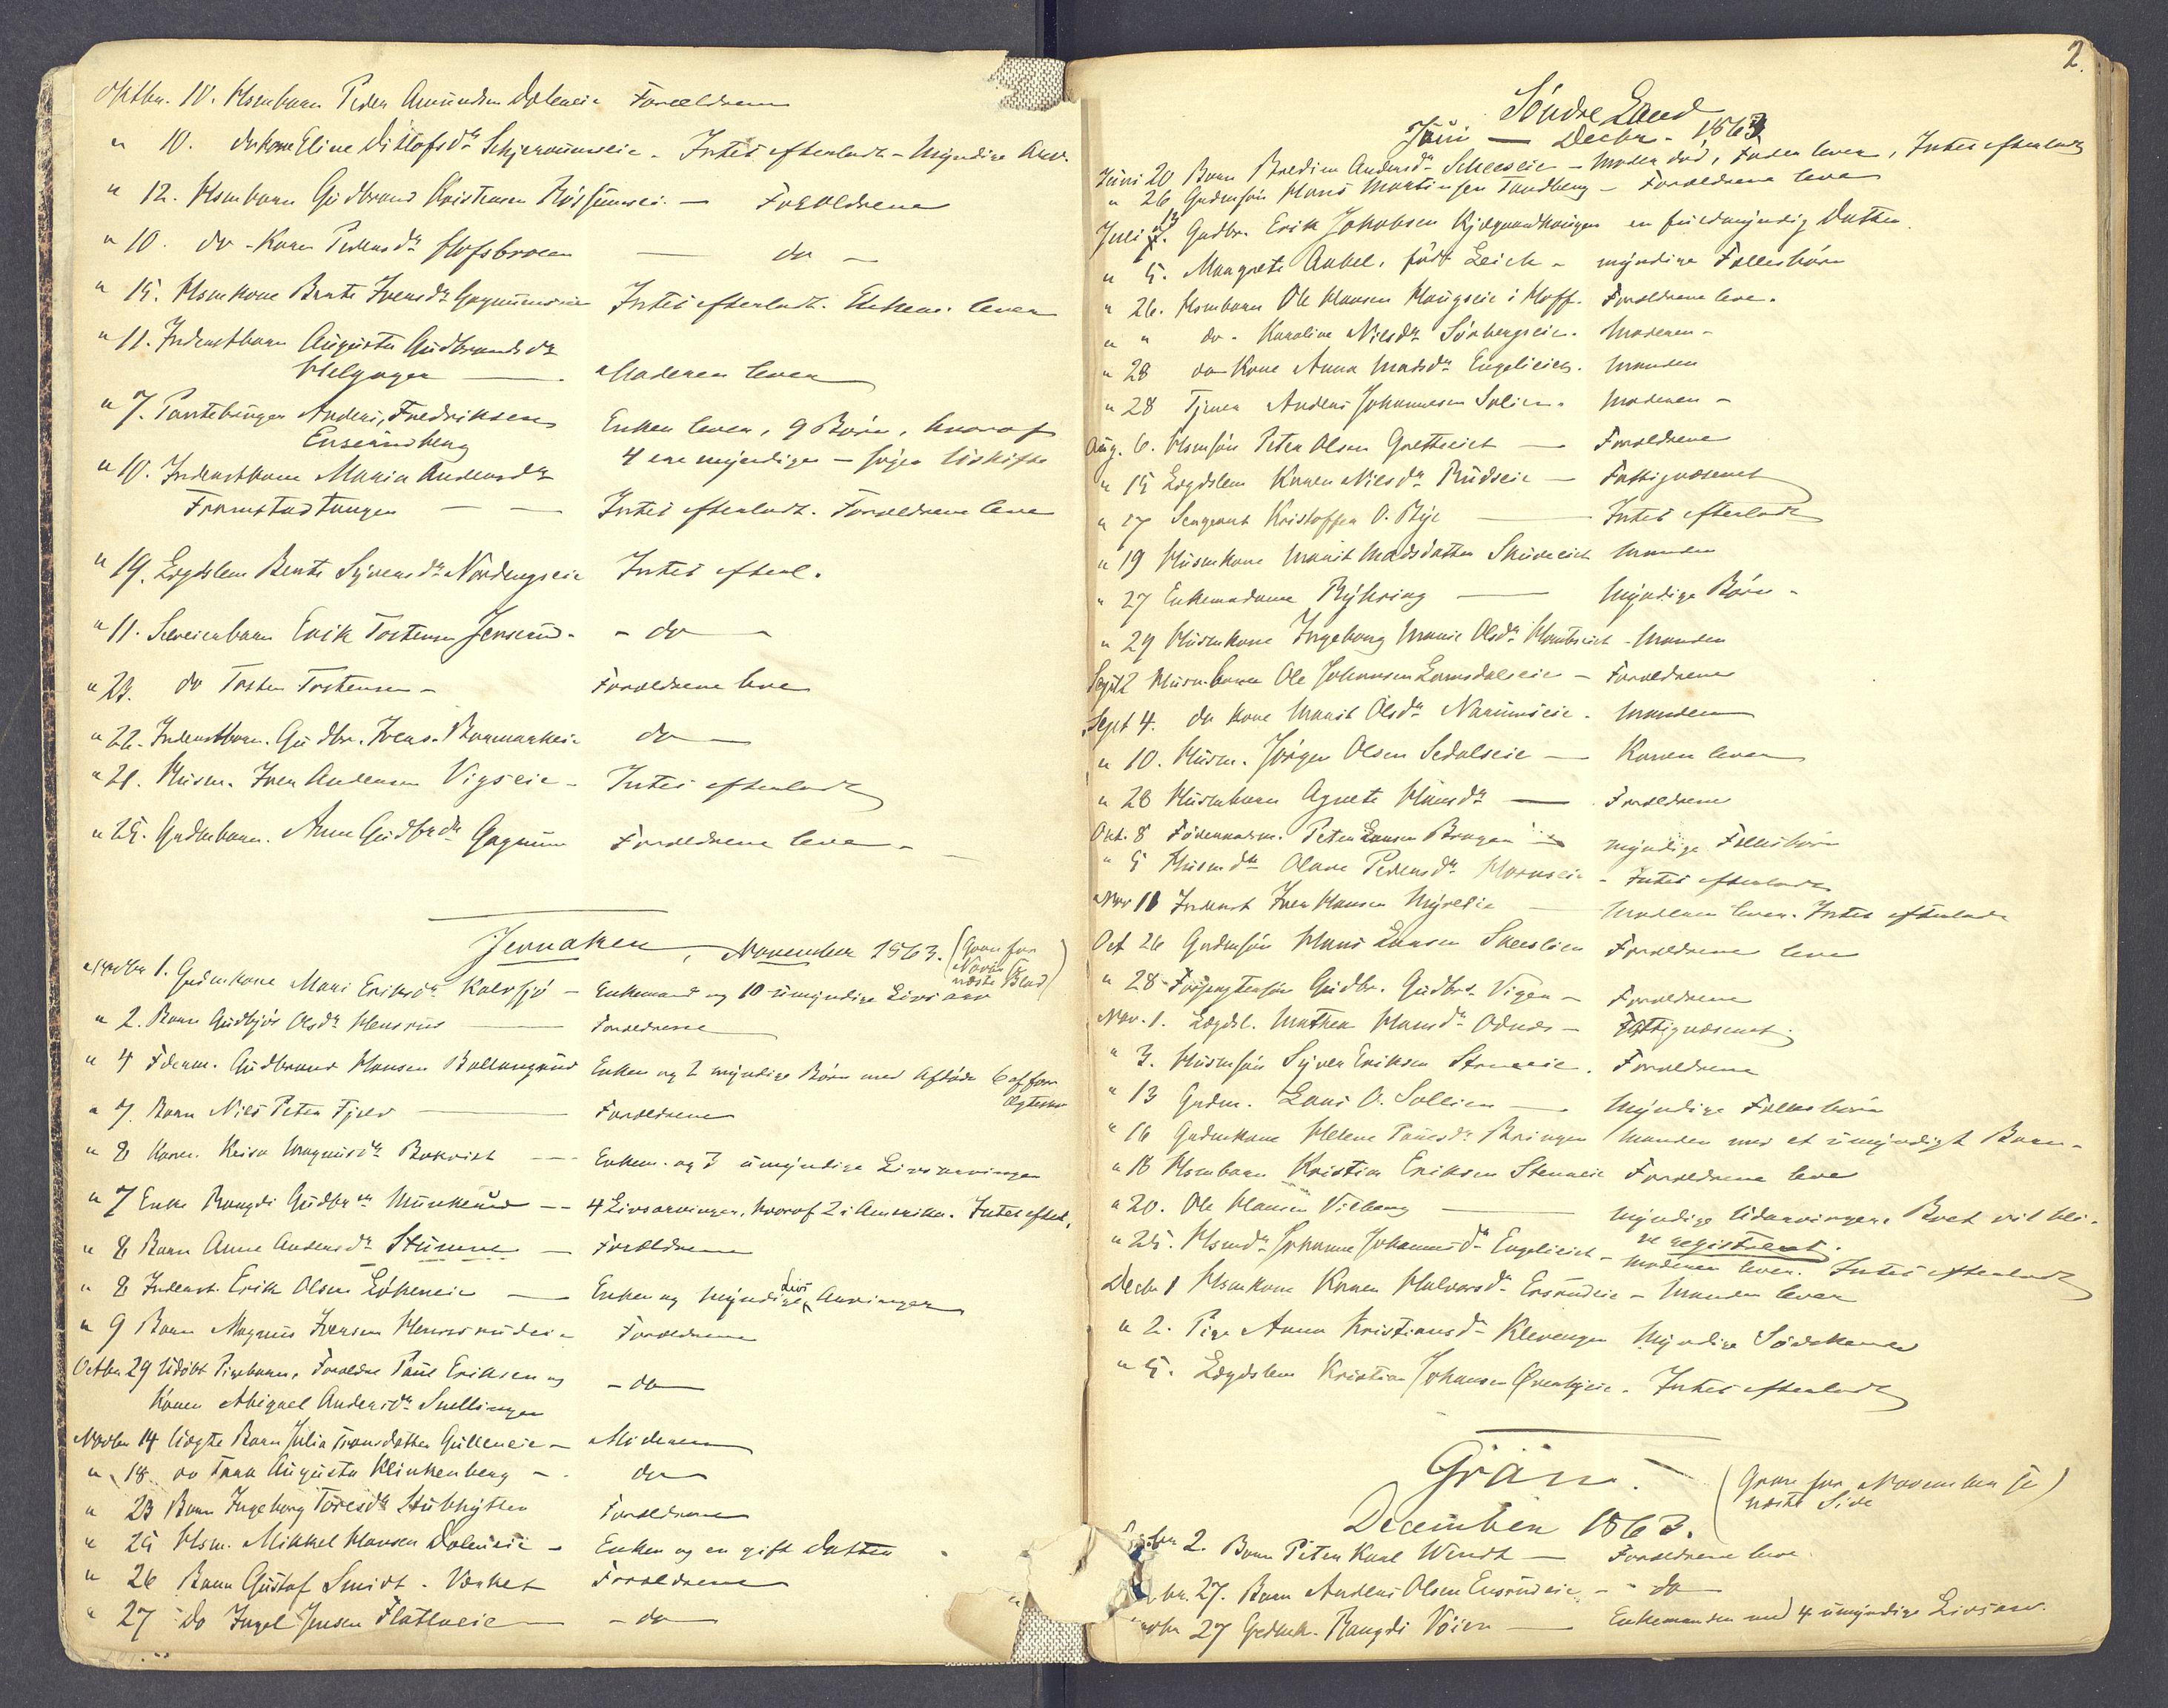 Oktbr. 10. Hsmbarn Peder Amundsen Daleneie Forældrene
" 10. do kone Eline Ditlofsdr Schjerounseie - Intet efterladt - Myndige Arv.
" 12. Hsmbarn Gudbrand Kristensen Røssumeie. — Forældrene
" 10. do - Karen Pedersdr Hofsbroen — do —
" 15. Hsmkone Berte Iversdr Gagnumseie Intet efterladt. Enkem. lever
" 11. Inderstbarn Augusta Gudbrandsdr
Helgager — Moderen lever
" 7. Pantebruger Anders Fredriksen Enken lever, 9 Børn, hvoraf
Enserudberg 4 ere myndige - søger Uskifte
" 10. Inderstkone Maria Andersdr
Framstadtangen — — Intet efterladt. Forældrene leve
" 19. Lægdslem Berte Syversdr Nordengseie Intet efterl.
" 11. Selveierbarn Erik Tostensen Jenserud - - do -
" 23. do Tosten Tostensen - Forældrene leve
" 22. Inderstbarn. Gudbr. Ivers. Bermarkeie do —
" 21. Husm. Iver Andersen Vigseie - Intet efterladt
" 25. Grdmbarn. Anne Gudbrdr Gagnum Forældrene leve -
Jevnaker, November 1863. (Gran for
Novbr. se
næste Blad)
Novbr 1. Grdmkone Mari Eriksdr Kalvsjø - Enkemand og 10 umyndige Livsarv
" 2. Barn Gudbjør Olsdr Hensrud — Forældrene
" 4 Føderm. Gudbrand Hansen Ballangrud Enken og 2 myndige Børn med Afdøde 6 af forr
Ægteskab
" 7. Barn Niels Peter Fjeld — Forældrene
" 8 Karen Keisa Magnusdr Bakvist — Enkem. og 3 umyndige Livsarvinger
" 7 Enke Rangdi Gudbrdr Munkerud — 4 Livsarvinger, hvoraf 2 i Amerika. Intet efterl.
" 8 Barn Anne Andersdr Stumne — Forældrene
" 8 Inderst. Erik Olsen Løkeneie — Enken og myndige Livs Arvinger
" 9 Barn Magnus Iversen Hensrudeie Forældrene
Octbr 29 Udøbt Pigebarn, Forældre Paul Eriksen og - do —
Karen Abigael Andersdr Snellingen
Novbr 14 Uægte Barn Julia Transdatter Gulleneie — Moderen
" 18 do Thea Augusta Klinkenberg — do
" 23 Barn Ingeborg Toresdr Stubhytten Forældrene
" 25 Hsm. Mikkel Hansen Daleneie — Enken og en gift Datter
" 26 Barn Gustaf Smidt - Værket Forældrene
" 27 do Ingel Jensen Flatlaeie — - do —
2.
Søndre Land
Juni — Decbr. 1863
Juni 20 Barn Bredine Andersdr Skeeseie - Moder død, Fader lever, Intet efterladt
" 26 Grdmsøn Hans Martinsen Tandberg - Forældrene leve
Juli 12. Grdbr. Erik Jakobsen Kjægvandhaugen en fuldmyndig Datter
" 5. Margrete Aabel, født Leich - myndige Fællesbørn
" 26. Hsmbarn Ole Hansen Haugseie i Hoff. Forældrene leve.
" " do - Karoline Nilsdr Sørbergseie. Moderen -
" 28 do Kone Anna Madsdr Engelieiet. Manden
" 28 Tjener Anders Johannesen Solien. Moderen -
Aug. 6. Hsmsøn Peter Olsen Gretteeiet — Forældrene
" 15 Lægdslem Karen Nilsdr Rudseie — Fattigvæsenet
" 17 Sergeant Kristoffer O. Bye — Intet efterladt
" 19 Husmkone Marit Madsdatter Skudeeiet Manden
" 27 Enkemadame Røhring — Myndige Børn -
" 29 Husmkone Ingeborg Marie Olsdr Hombseiet - Manden
Sept 2 Husm.barn Ole Johansen Lomsdalseie - Forældrene
Sept 4. do kone Marit Olsdr Narumseie. Manden
" 10. Husm. Jørgen Olsen Sedalseie — Konen lever
" 28 Husmbarn Agnete Hansdr — Forældrene
Oct. 8 Føderaadsm. Peter Larsen Bragen — myndige Fællesbørn
" 5 Husmdtr Olave Pedersdr Hornseie - Intet efterladt
Nov 11 Inderst Iver Hansen Myreeie — Moderen lever. Intet efterladt
Oct 26 Grdmsøn Hans Larsen Skeeslien Forældrene leve
" 28 Forpagtersøn Gudbr. Gudbrs. Vigen - Forældrene
Nov. 1. Lægdsl. Mathea Hansdr Odnæs - Fattigvæsenet.
" 3. Husmsøn Syver Eriksen Steneeie. Forældrene
" 13 Grdm. Lars O. Sollien — Myndige Fællesbørn
" 16 Grdmkone Helene Paulsdr Bringen Manden med et umyndigt Barn -
" 18 Hsmbarn Kristian Eriksen Steneeie Forældrene leve
" 20. Ole Hansen Vilberg — Myndige Udarvinger. Boet vil bli-
ve registreret.
" 25. Hsmdr Johanne Johannesdr Engelieiet - Moderen lever. Intet efterladt
Decbr 1 Hsmkone Karen Halvorsdr Ersrudeie - Manden lever
" 2. Pige Anna Kristiansdr Klevengen Myndige Sødskende
" 5. Lægdslem Kristian Johansen Øverbyeie. Intet efterladt
Gran.
(Gran for November se
næste Side)
December 1863.
2. Barn Peter Karl Wendt — Forældrene leve.
br. 27. Barn Anders Olsen Ensrudeie - - do —
ovbr 27 Grdmk. Rangdi Vøien — Enkemanden med 4 umyndige Livsarv.